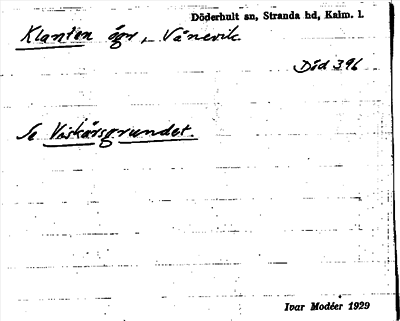 Döderhult sn, Stranda hd, Kalm. l.
Klanten ögr, Vånevik
Död 396
Se Viskärsgrundet.
Ivar Modéer 1929